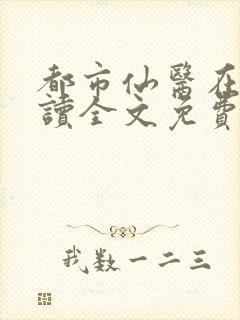 都市仙醫在
讀全文免費
我数一二三